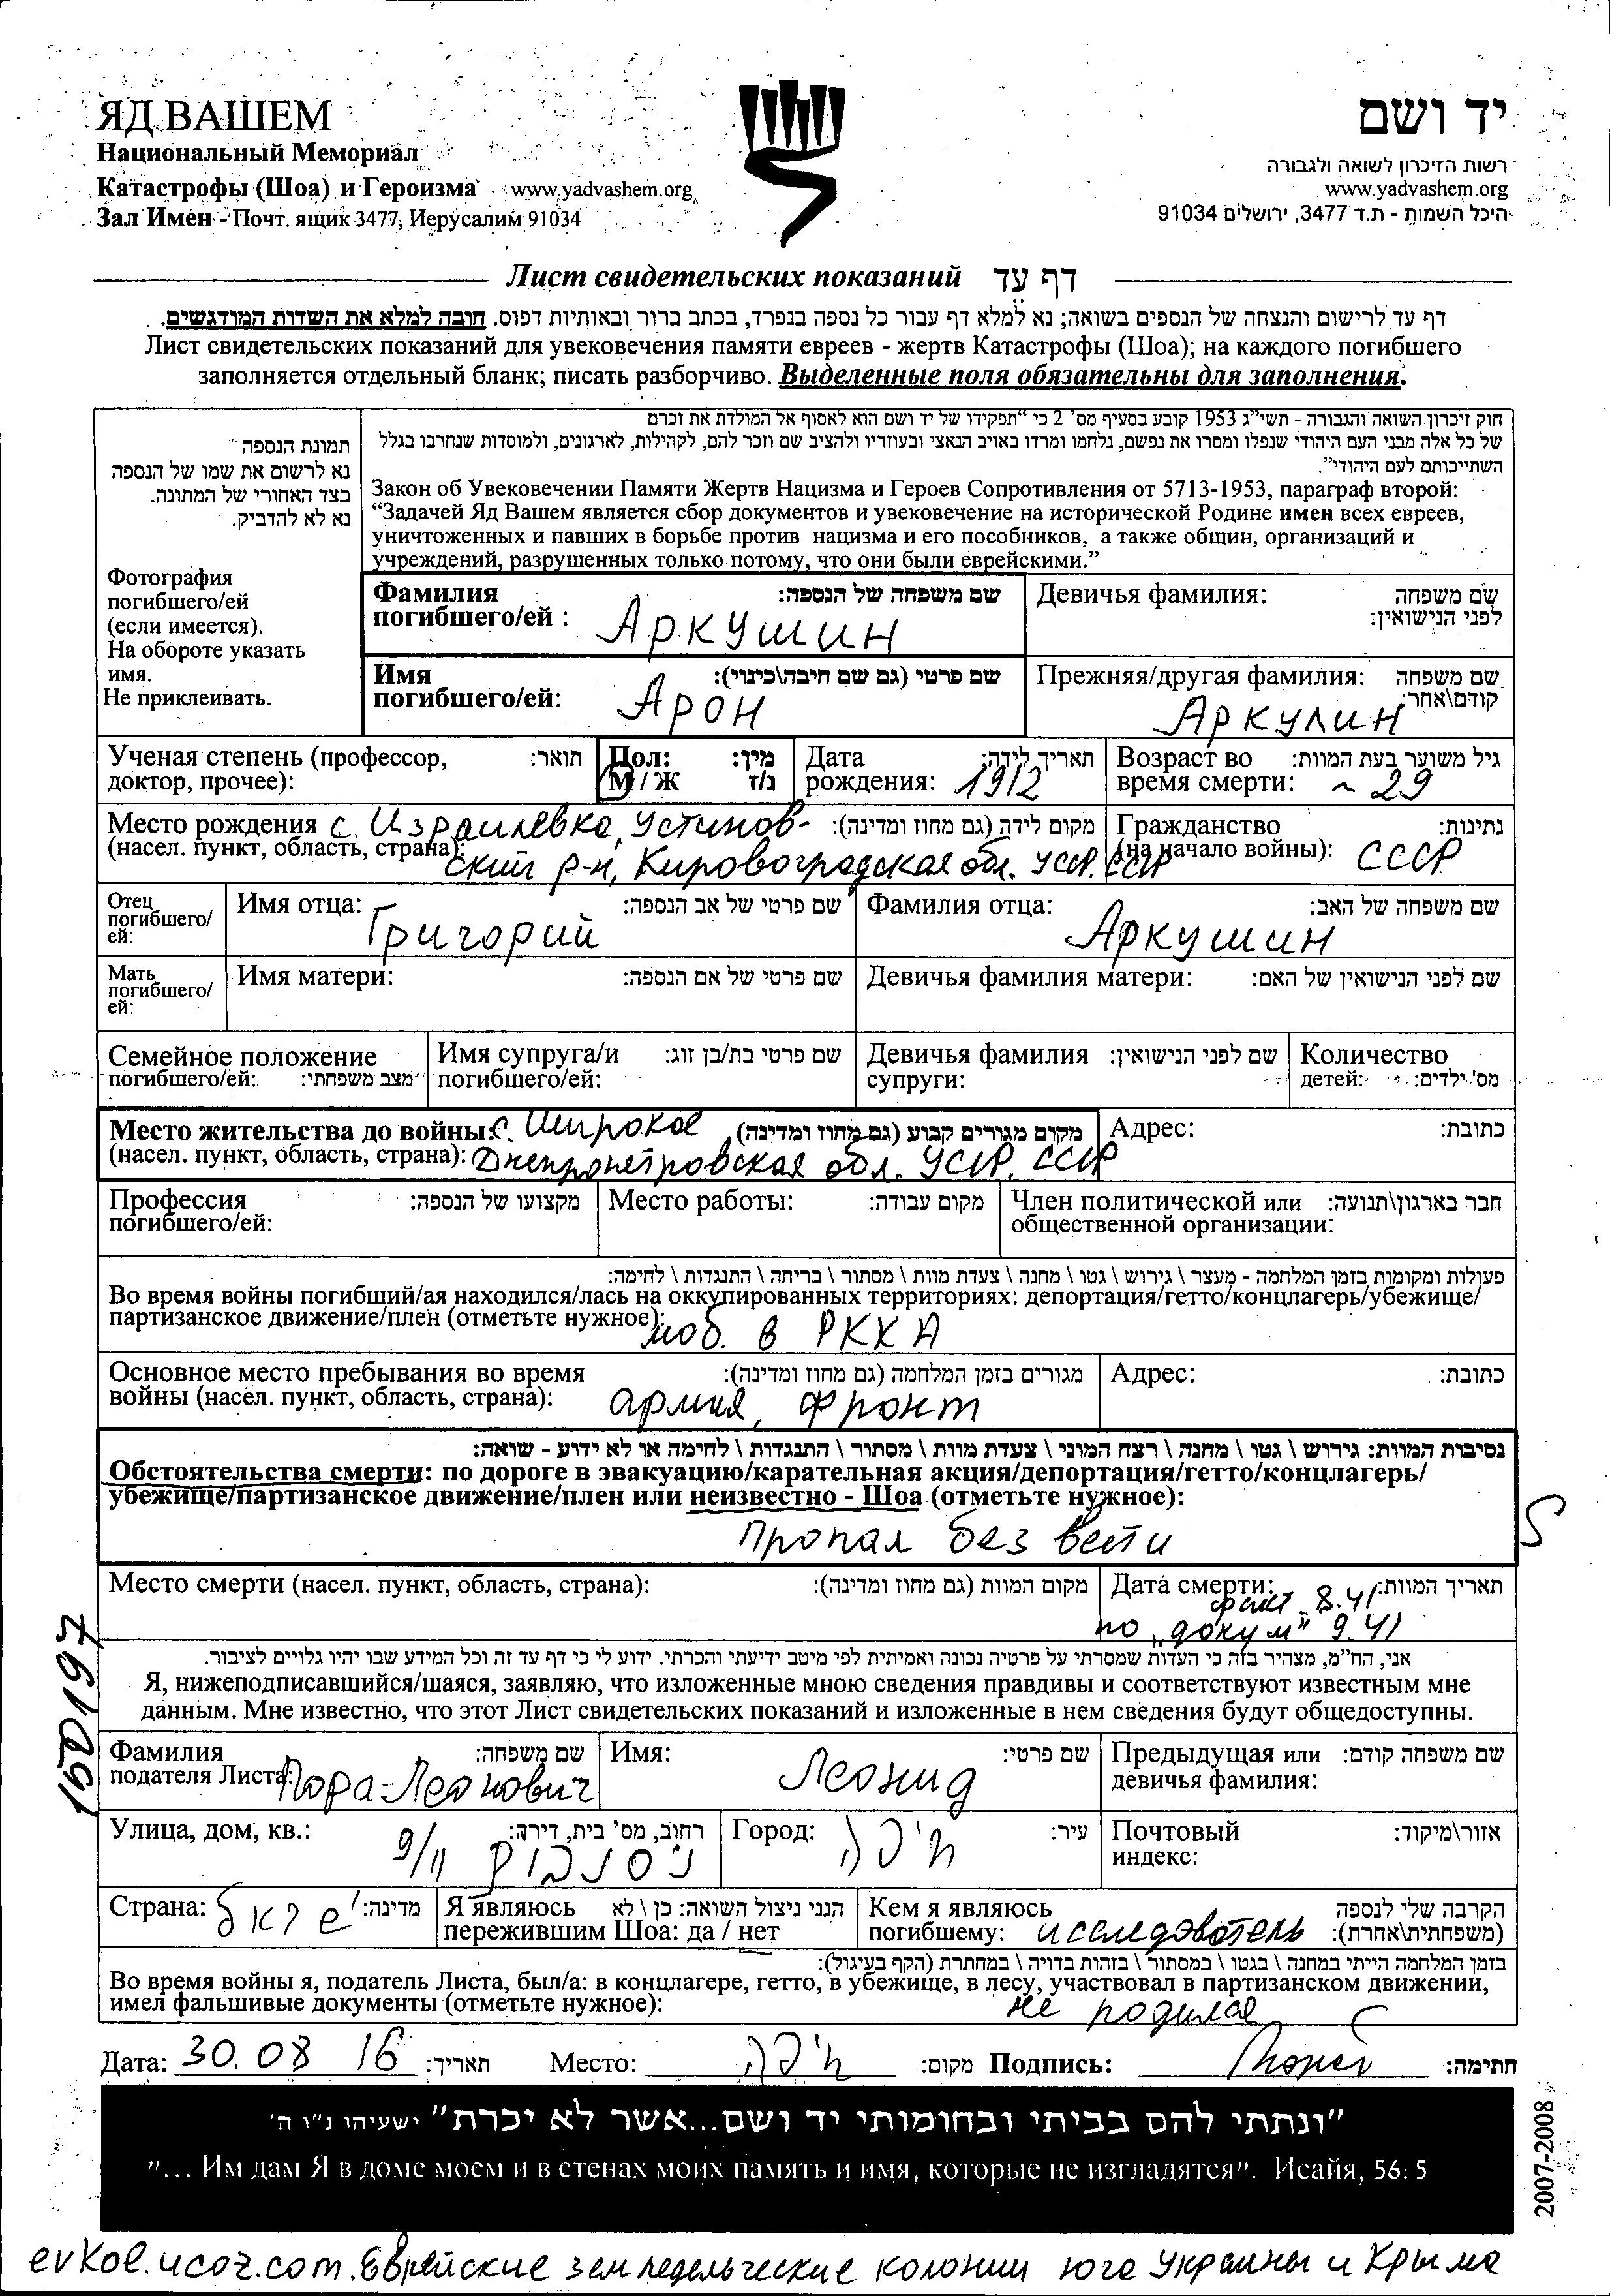 ЯД ВАШЕМ
Национальный Мемориал
Катастрофы (Шоа) и Героизма www.yadvashem.org
Зал Имен - Почт. ящик 3477, Иерусалим 91034
יד ושם
רשות הזיכרון לשואה ולגבורה
www.yadvashem.org
היכל השמות - ת.ד 3477, ירושלים 91034
Лист свидетельских показаний דף עד
דף עד לרישום והנצחה של הנספים בשואה; נא למלא דף עבור כל נספה בנפרד, בכתב ברור ובאותיות דפוס. חובה למלא את השדות המודגשים.
Лист свидетельских показаний для увековечения памяти евреев - жертв Катастрофы (Шоа); на каждого погибшего
заполняется отдельный бланк; писать разборчиво. Выделенные поля обязательны для заполнения.
תמונת הנספה
נא לרשום את שמו של הנספה
בצד האחורי של התמונה.
נא לא להדביק.
Фотография
погибшего/ей
(если имеется).
На обороте указать
имя.
Не приклеивать.
חוק זיכרון השואה והגבורה - תשי"ג 1953 קובע בסעיף מס' 2 כי "תפקידו של יד ושם הוא לאסוף אל המולדת את זכרם
של כל אלה מבני העם היהודי שנפלו ומסרו את נפשם, נלחמו ומרדו באויב הנאצי ובעוזריו ולהציב שם וזכר להם, לקהילות, לארגונים, ולמוסדות שנחרבו בגלל
השתייכותם לעם היהודי".
Закон об Увековечении Памяти Жертв Нацизма и Героев Сопротивления от 5713-1953, параграф второй:
“Задачей Яд Вашем является сбор документов и увековечение на исторической Родине имен всех евреев,
уничтоженных и павших в борьбе против нацизма и его пособников, а также общин, организаций и
учреждений, разрушенных только потому, что они были еврейскими.”
Фамилия שם משפחה של הנספה:
погибшего/ей : Аркушин
Девичья фамилия: שם משפחה
לפני הנישואין:
Имя שם פרטי (גם שם חיבה\כינוי):
погибшего/ей: Арон
Прежняя/другая фамилия: שם משפחה
קודם\אחר:
Аркулин
Ученая степень (профессор, תואר:
доктор, прочее):
Пол: מין:
М / Ж ז/נ
Дата תאריך לידה:
рождения: 1912
Возраст во גיל משוער בעת המוות:
время смерти: ~ 29
Место рождения с. Израилевка, Устинов- מקום לידה (גם מחוז ומדינה):
(насел. пункт, область, страна): ский р-н, Кировоградская обл. УССР. СССР
Гражданство נתינות:
(на начало войны): СССР
Отец
погибшего/
ей:
Имя отца: שם פרטי של אב הנספה:
Григорий
Фамилия отца: שם משפחה של האב:
Аркушин
Мать
погибшего/
ей:
Имя матери: שם פרטי של אם הנספה:
Девичья фамилия матери: שם לפני הנישואין של האם:
Семейное положение
погибшего/ей: מצב משפחתי:
Имя супруга/и שם פרטי בת/בן זוג:
погибшего/ей:
Девичья фамилия שם לפני הנישואין:
супруги:
Количество
детей: מס' ילדים:
Место жительства до войны: с. Широкое מקום מגורים קבוע (גם מחוז ומדינה),
(насел. пункт, область, страна): Днепропетровская обл. УССР. СССР
Адрес: כתובת:
Профессия מקצועו של הנספה:
погибшего/ей:
Место работы: מקום עבודה:
Член политической или חבר בארגון\תנועה:
общественной организации:
פעולות ומקומות בזמן המלחמה - מעצר \ גירוש \ גטו \ מחנה \ צעדת מוות \ מסתור \ בריחה \ התנגדות \ לחימה:
Во время войны погибший/ая находился/лась на оккупированных территориях: депортация/гетто/концлагерь/убежище/
партизанское движение/плен (отметьте нужное): моб. в РККА
Основное место пребывания во время מגורים בזמן המלחמה (גם מחוז ומדינה):
войны (насел. пункт, область, страна): армия, фронт
Адрес: כתובת:
נסיבות המוות: גירוש \ גטו \ מחנה \ רצח המוני \ צעדת מוות \ מסתור \ התנגדות \ לחימה או לא ידוע - שואה:
Обстоятельства смерти: по дороге в эвакуацию/карательная акция/депортация/гетто/концлагерь/
убежище/партизанское движение/плен или неизвестно - Шоа (отметьте нужное):
Пропал без вести
S
Место смерти (насел. пункт, область, страна): מקום המוות (גם מחוז ומדינה):
Дата смерти: תאריך המוות:
факт. 8.41
по „докум“ 9.41
150197
אני, הח"מ, מצהיר בזה כי העדות שמסרתי על פרטיה נכונה ואמיתית לפי מיטב ידיעתי והכרתי. ידוע לי כי דף עד זה וכל המידע שבו יהיו גלויים לציבור.
Я, нижеподписавшийся/шаяся, заявляю, что изложенные мною сведения правдивы и соответствуют известным мне
данным. Мне известно, что этот Лист свидетельских показаний и изложенные в нем сведения будут общедоступны.
Фамилия שם משפחה:
подателя Листа: Пора-Леонович
Имя: שם פרטי:
Леонид
Предыдущая или שם משפחה קודם:
девичья фамилия:
Улица, дом, кв.: רחוב, מס' בית, דירה:
ניסנבוים 9/11
Город: עיר:
חיפה
Почтовый אזור\מיקוד:
индекс:
Страна: מדינה:
ישראל
Я являюсь הנני ניצול השואה: כן \ לא
пережившим Шоа: да / нет
Кем я являюсь הקרבה שלי לנספה
погибшему: исследователь (משפחתית\אחרת):
בזמן המלחמה הייתי במחנה \ בגטו \ במסתור \ בזהות בדויה \ במחתרת (הקף בעיגול):
Во время войны я, податель Листа, был/а: в концлагере, гетто, в убежище, в лесу, участвовал в партизанском движении,
имел фальшивые документы (отметьте нужное): не родился
Дата: 30. 08 16 תאריך: Место: חיפה מקום: Подпись: חתימה:
"ונתתי להם בביתי ובחומותי יד ושם...אשר לא יכרת" ישעיהו נ"ו ה'
"... Им дам Я в доме моем и в стенах моих память и имя, которые не изгладятся". Исайя, 56: 5
2007-2008
evkol.ucoz.com. Еврейские земледельческие колонии юга Украины и Крыма